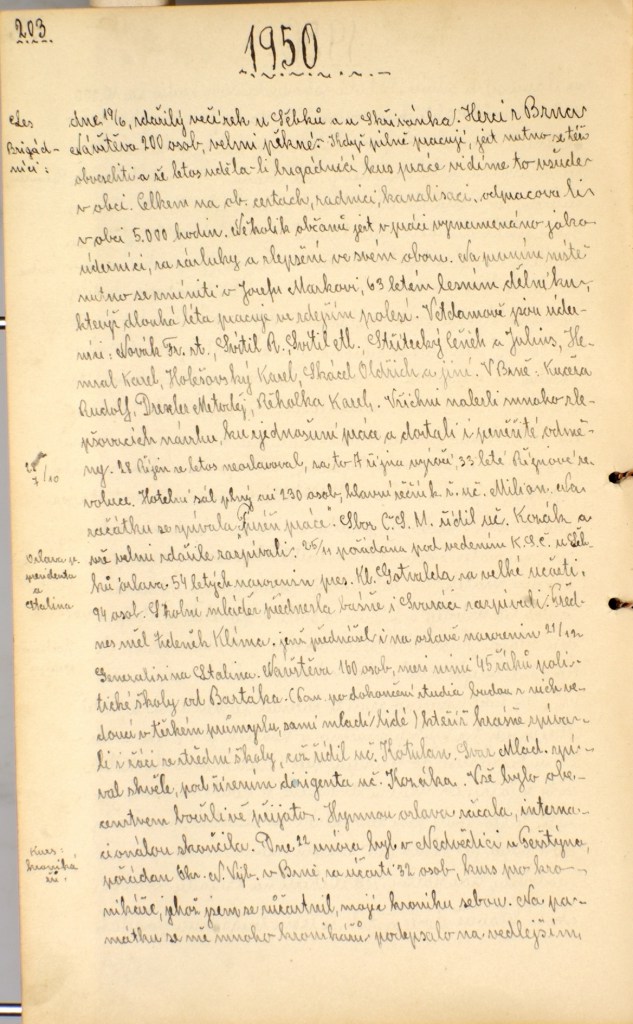 203
1950
Les
Brigád-
níci:
dne 19/6, zdařilý večírek u Sébků a u Skřivánka. Herci z Brna
Návštěva 200 osob, velmi pěkné. Když pilně pracují, jest nutno se též
obveseliti a že letos udělali brigádníci kus práce vidíme to všude
v obci. Celkem na ob. cestách, radnici, kanalisaci, odpracovali
v obci 5.000 hodin. Několik občanů jest v práci vyznamenáno jako
úderníci, za zásluhy a zlepšení ve svém oboru. Na prvním místě
nutno se zmíniti o Josefu Markovi, 63 letém lesním dělníku,
který dlouhá léta pracuje ve zdejším polesí. V jsou úder-
níci: Novák Fr. st., Svítil R., Svítil Ml. Střítecký Čeněk a Julius, He-
mzal Karel, Holešovský Karel, Skácel Oldřich a jiné. V Brně: Kučera
Rudolf, Drexler Metoděj, Řehořka Karel. Všichni nalezli mnoho zle-
pšovacích návrhů, ku zjednodušení práce a dostali i peněžité odmě-
ny. 28 Říjen se letos neoslavoval, za to 7 října výročí, 33 leté Říjnové re-
28
7/10
voluce. Hotelní sál plný asi 230 osob, hlavní řečník ř. uč. Milian. Na
začátku se zpívala "Píseň práce". Sbor Č.S.M. řídil uč. Kozák a
vše velmi zdařile zazpívali. 26/11 pořádána pod vedením K.S.Č. u Séb-
Oslava p.
presidenta
a
Stalina
ků oslava 54 letých narozenin pres. Kl. Gotvalda za velké účasti,
94 osob. Školní mládež přednesla básně i Svazáci zazpívali. Před-
nes měl Zdeněk Klíma. jenž přednášel i na oslavě narozenin 21/12.
Generalisima Stalina. Návštěva 160 osob, mezi nimi 45 žáků poli-
tické školy od Bartáka. (Pozn. po dokončení studia budou z nich ve-
doucí v těžkém průmyslu, sami mladí lidé) kteříž krásně zpíva-
li i žáci ze střední školy, což řídil uč. Kotulan. Svaz mlád. zpí-
val skvěle, pod řízením dirigenta uč. Kozáka. Vše bylo obe-
censtvem bouřlivě přijato. Hymnou oslava začala, interna-
cionálou skončila. Dne 22 února byl v Nedvědici u Pernštýna,
Kurs:
kroniká
řů:
pořádán Okr. N. Výb. v Brně, za účasti 32 osob, kurs pro kro-
nikáře, jehož jsem se zúčastnil, maje kroniku sebou. Na pa-
mátku se mě mnoho kronikářů podepsalo na vedlejším,